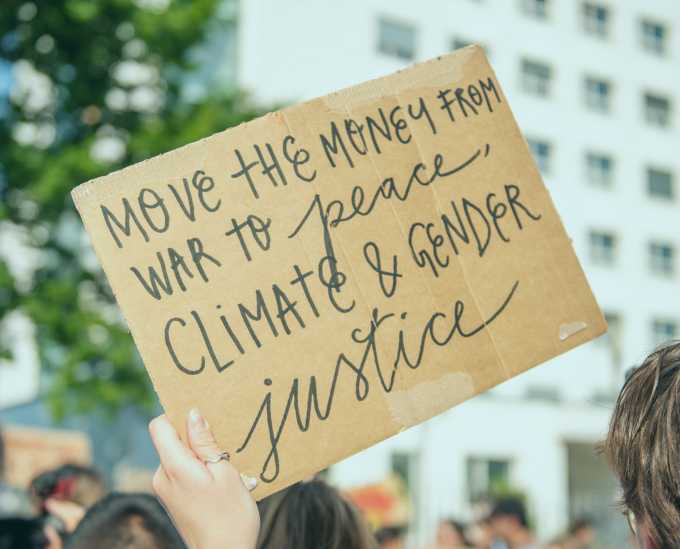 MOVE THE MONEY FROM
WAR TO peace,
CLIMATE & GENDER
justice